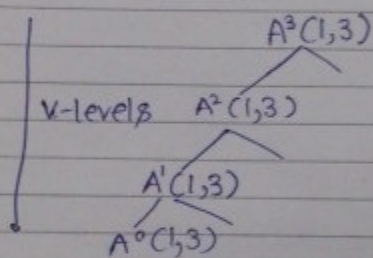 A³(1,3)
V-levels A²(1,3)
A¹(1,3)
A⁰(1,3)